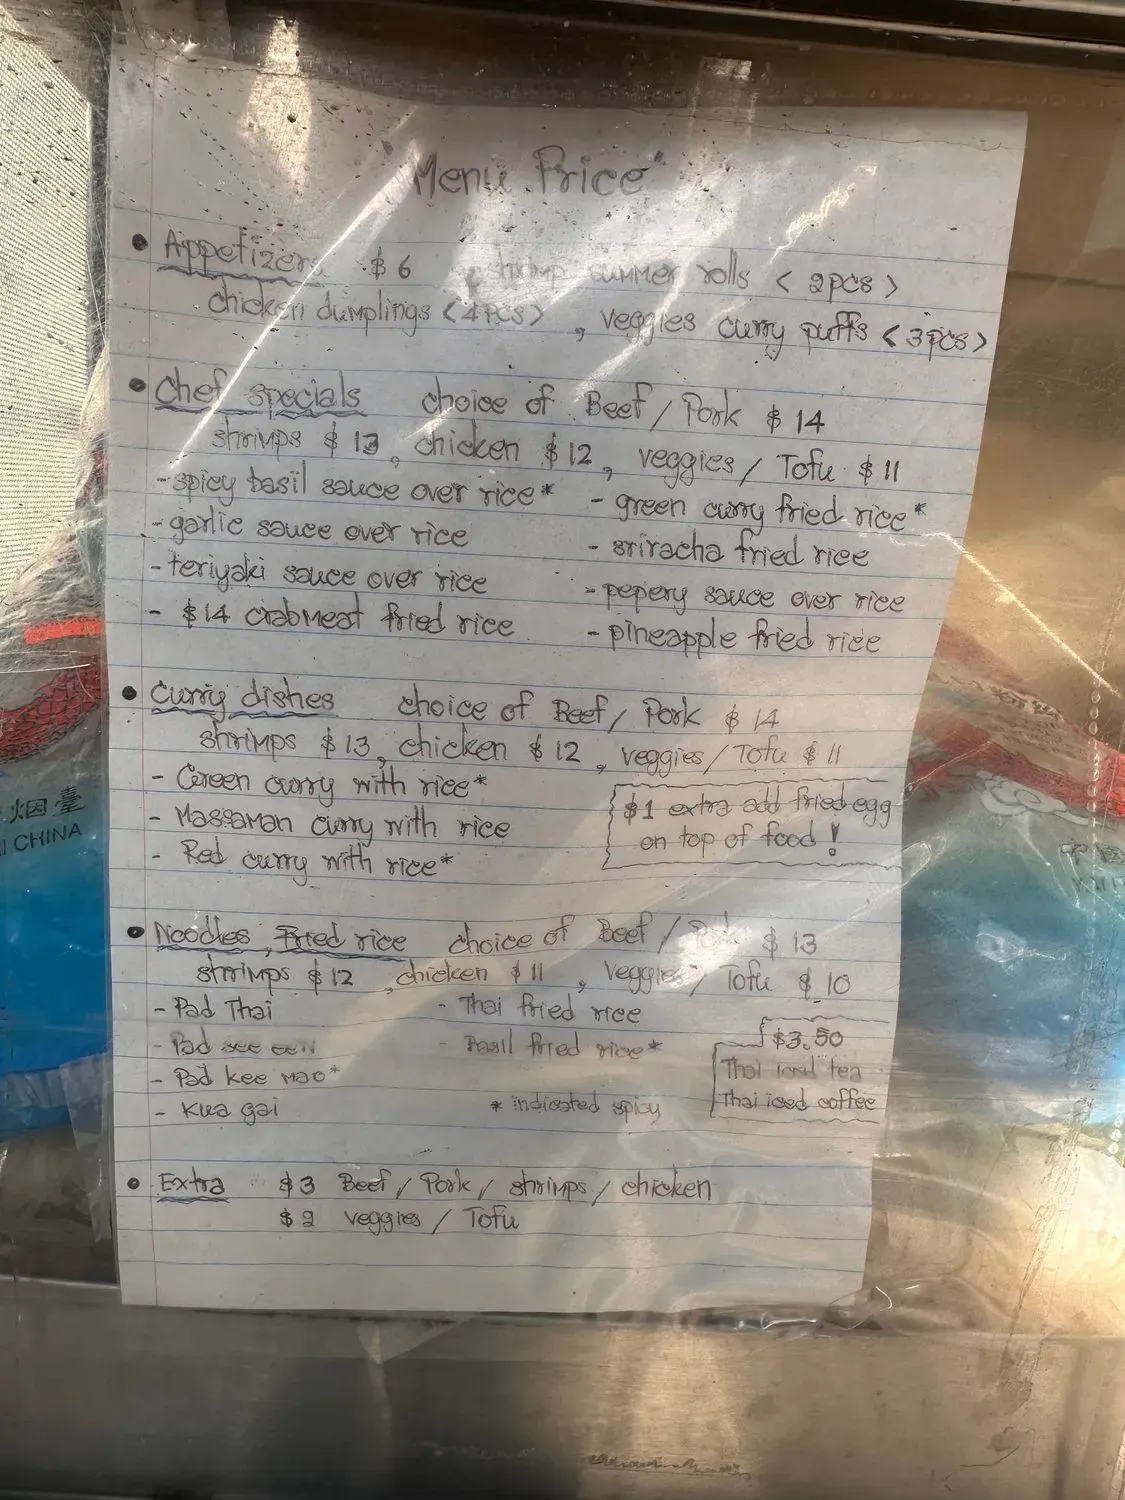 "Menu Price"
• Appetizers $6 shrimp summer rolls < 2pcs >
chicken dumplings < 4pcs > , veggies curry puffs < 3pcs >
• Chef specials choice of Beef / Pork $ 14
shrimps $ 13 , chicken $ 12 , veggies / Tofu $ 11
- spicy basil sauce over rice* - green curry fried rice*
- garlic sauce over rice - sriracha fried rice
- teriyaki sauce over rice - pepery sauce over rice
- $14 crabmeat fried rice - pineapple fried rice
• Curry dishes choice of Beef / Pork $ 14
shrimps $ 13 , chicken $ 12 , veggies / Tofu $ 11
- Green curry with rice*
- Massaman curry with rice
- Red curry with rice*
$1 extra add fried egg
on top of food !
• Noodles , Fried rice choice of Beef / Pork $ 13
shrimps $ 12 , chicken $ 11 , veggies / Tofu $ 10
- Pad Thai - Thai fried rice
- Pad see eew - Basil fried rice*
- Pad kee mao*
- Kua gai * indicated spicy
$3.50
Thai iced tea
Thai iced coffee
• Extra $3 Beef / Pork / shrimps / chicken
$ 2 veggies / Tofu
烟臺
CHINA
中国